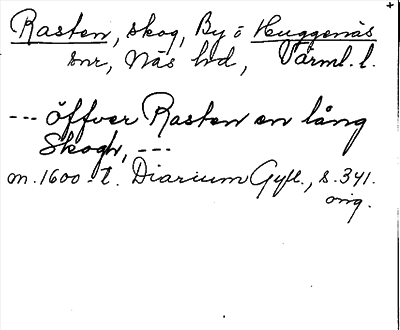 Rasten, skog, By o Huggenäs
snr, Näs hd, Värml. l.
--- öffver Rasten en lång
Skogh, ---
m. 1600-t. Diarium Gyll., s. 341.
orig.